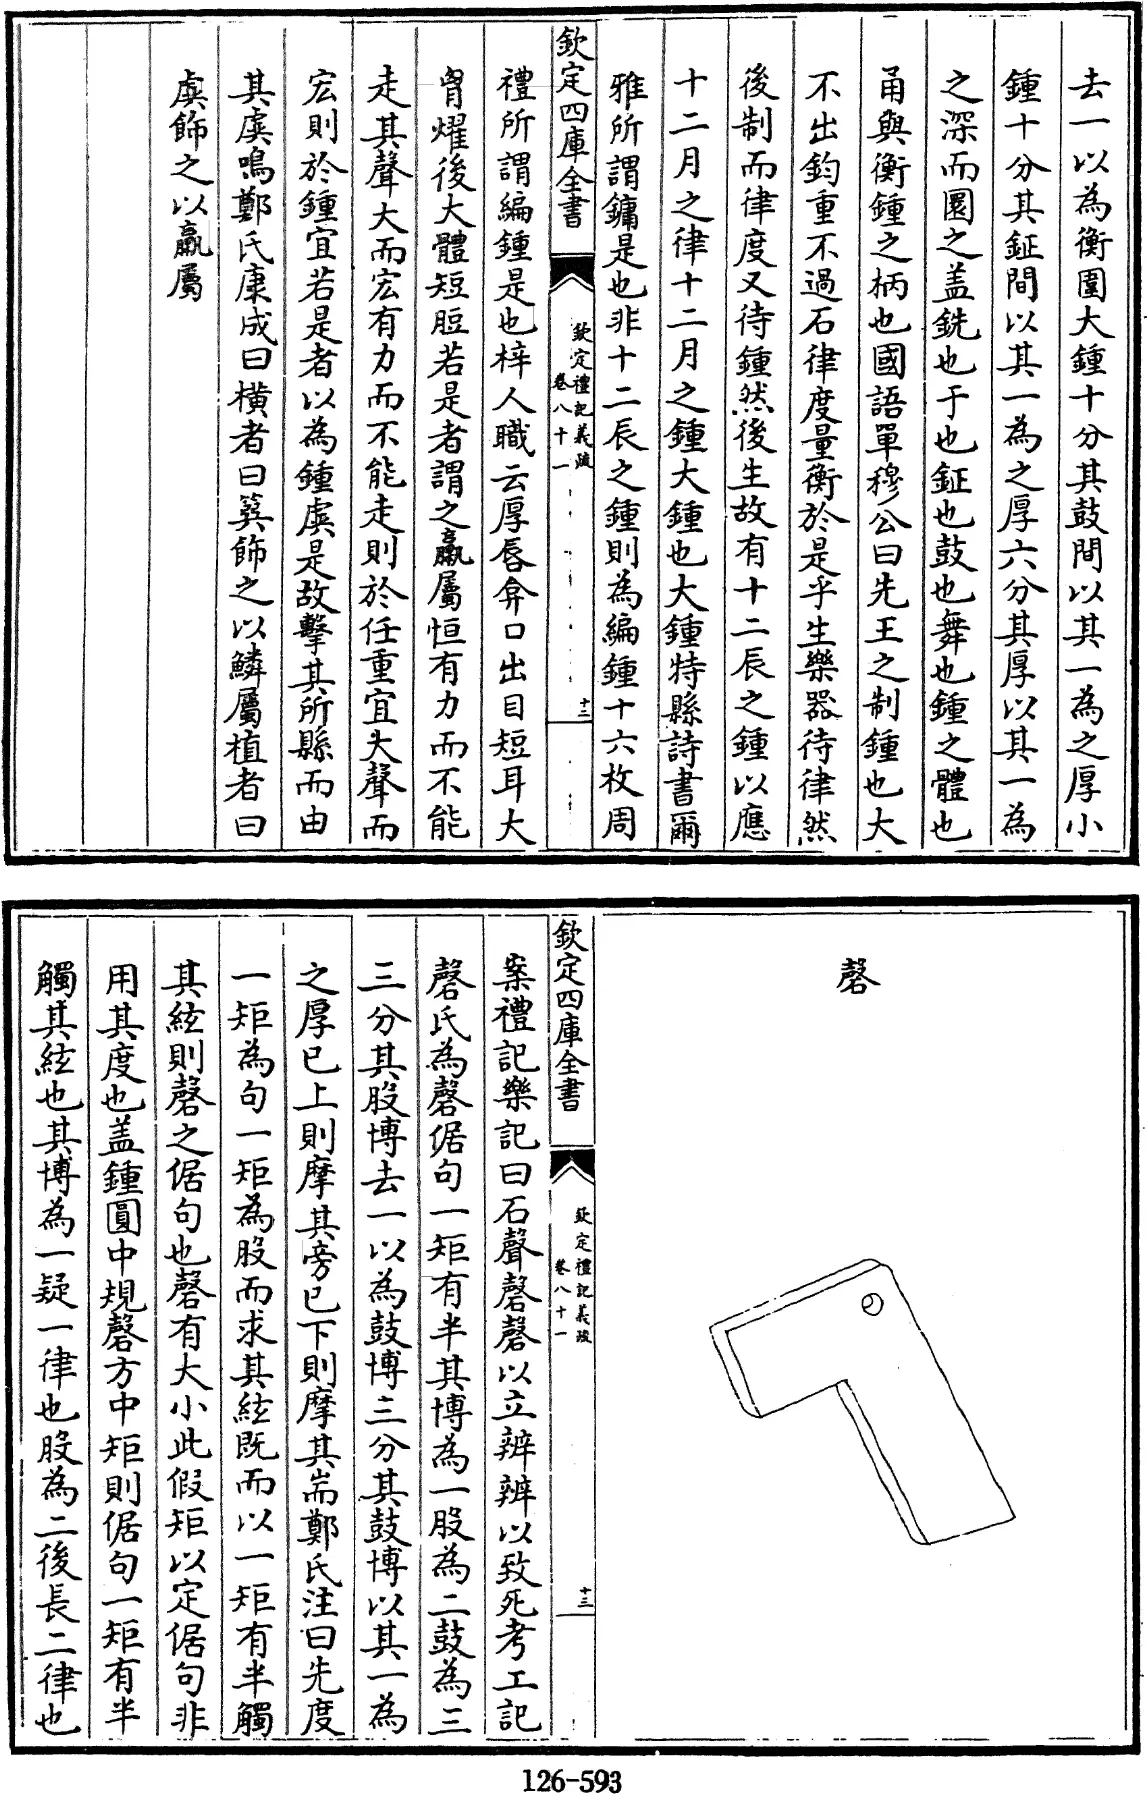 去一以為衡圍大鍾十分其鼓間以其一為之厚小
鍾十分其鉦間以其一為之厚六分其厚以其一為
之深而圜之盖銑也于也鉦也鼓也舞也鍾之體也
甬與衡鍾之柄也國語單穆公曰先王之制鍾也大
不出鈞重不過石律度量衡於是乎生樂器待律然
後制而律度又待鍾然後生故有十二辰之鍾以應
十二月之律十二月之鍾大鍾也大鍾特縣詩書爾
雅所謂鏞是也非十二辰之鍾則為編鍾十六枚周
欽定四庫全書
欽定禮記義疏
卷八十一
十三
禮所謂編鍾是也梓人職云厚唇弇口出目短耳大
胷燿後大體短脰若是者謂之臝屬恒有力而不能
走其聲大而宏有力而不能走則於任重宜大聲而
宏則於鍾宜若是者以為鍾虡是故擊其所縣而由
其虡鳴鄭氏康成曰横者曰簨飾之以鱗屬植者曰
虡飾之以臝屬
磬
欽定四庫全書
欽定禮記義疏
卷八十一
十三
案禮記樂記曰石聲磬磬以立辨辨以致死考工記
磬氏為磬倨句一矩有半其博為一股為二鼓為三
三分其股博去一以為鼓博三分其鼓博以其一為
之厚已上則摩其旁已下則摩其耑鄭氏注曰先度
一矩為句一矩為股而求其絃既而以一矩有半觸
其絃則磬之倨句也磬有大小此假矩以定倨句非
用其度也盖鍾圓中規磬方中矩則倨句一矩有半
觸其絃也其博為一疑一律也股為二後長二律也
126-593